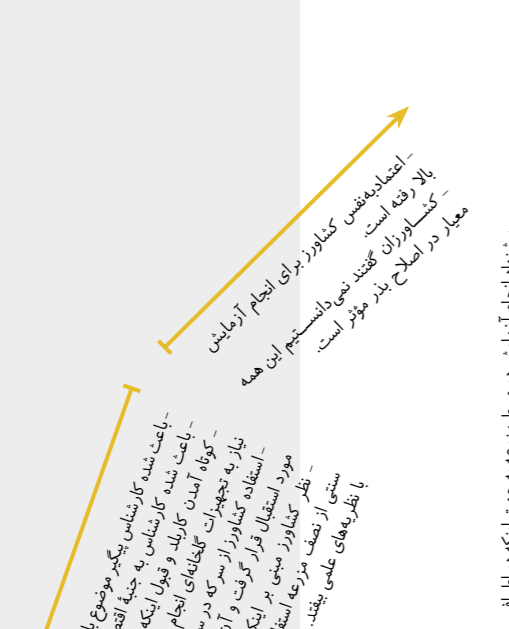 - اعتمادبه‌نفس کشاورز برای انجام آزمایش
بالا رفته است.
- کشــاورزان گفتند نمی‌دانســتیم این همه
معیار در اصلاح بذر مؤثر است.
- باعث شده کارشناس پیگیر موضوع
- باعث شده کارشناس به جنبهٔ
- کوتاه آمدن کاربلد و قبول اینکه
نیاز به تجهیزات گلخانه‌ای انجام
- استفاده کشاورز از سر که در
مورد استقبال قرار گرفت و
- نظر کشاورز مبنی بر
سنتی از نصف مزرعه
با نظریه‌های علمی بیفتد.